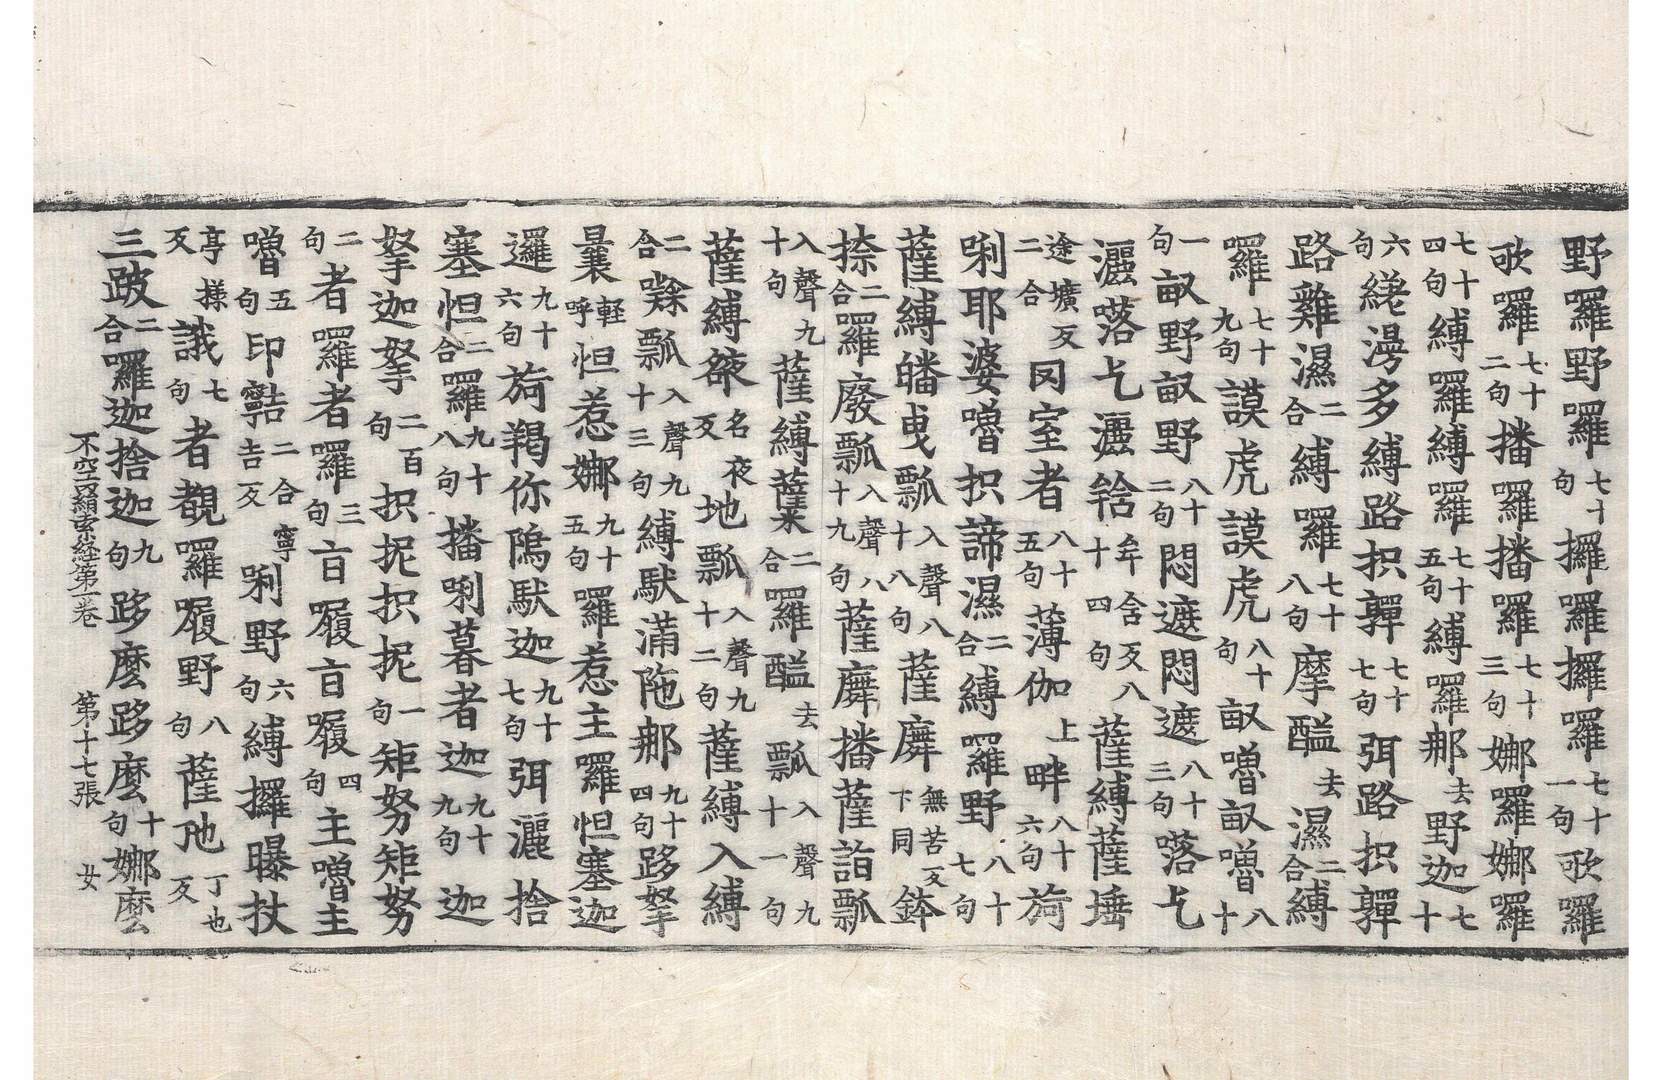 野囉野囉七十句攞囉攞囉七十一句歌囉
歌囉七十二句播囉播囉七十三句娜囉娜囉
七十四句縛囉縛囉七十五句縛囉那去野迦七十
六句縒漫多縛路抧嚲七十七句弭路抧嚲
路雞濕二合縛囉七十八句摩醯去濕二合縛
囉七十九句謨虎謨虎八十句畝嚕畝嚕八十
一句畝野畝野八十二句悶遮悶遮八十三句𠸪乞
灑𠸪乞灑𩎖牟含反八十四句薩縛薩埵
途壙反二合㘝室者八十五句薄伽上畔八十六句旖
唎耶婆嚕抧諦濕二合縛囉野八十七句
薩縛皤曳瓢入聲八十八句薩䴢無苦反下同鉢
捺二合囉廢瓢入聲八十九句薩䴢播薩詣瓢
入聲九十句薩縛薩二合囉醯去瓢入聲九十一句
薩縛䘸名夜反地瓢入聲九十二句薩縛入縛
二合㘓瓢入聲九十三句縛馱滿陁那九十四句跢拏
曩輕呼怛惹娜九十五句囉惹主囉怛塞迦
邏九十六句旖羯你隝馱迦九十七句弭灑捨
塞怛二合囉九十八句播唎暮者迦九十九句迦
拏迦拏二百句抧抳抧抳一句矩努矩努
二句者囉者囉三句亩履亩履四句主嚕主
嚕五句印𪗨二合吉反寧唎野六句縛攞曝杖
亭樣反誐七句者覩囉履野八句薩吔丁也反
三跛二合囉迦捨迦九句跢麽跢麽十句娜麽
不空羂索経第一卷 第十七張 女